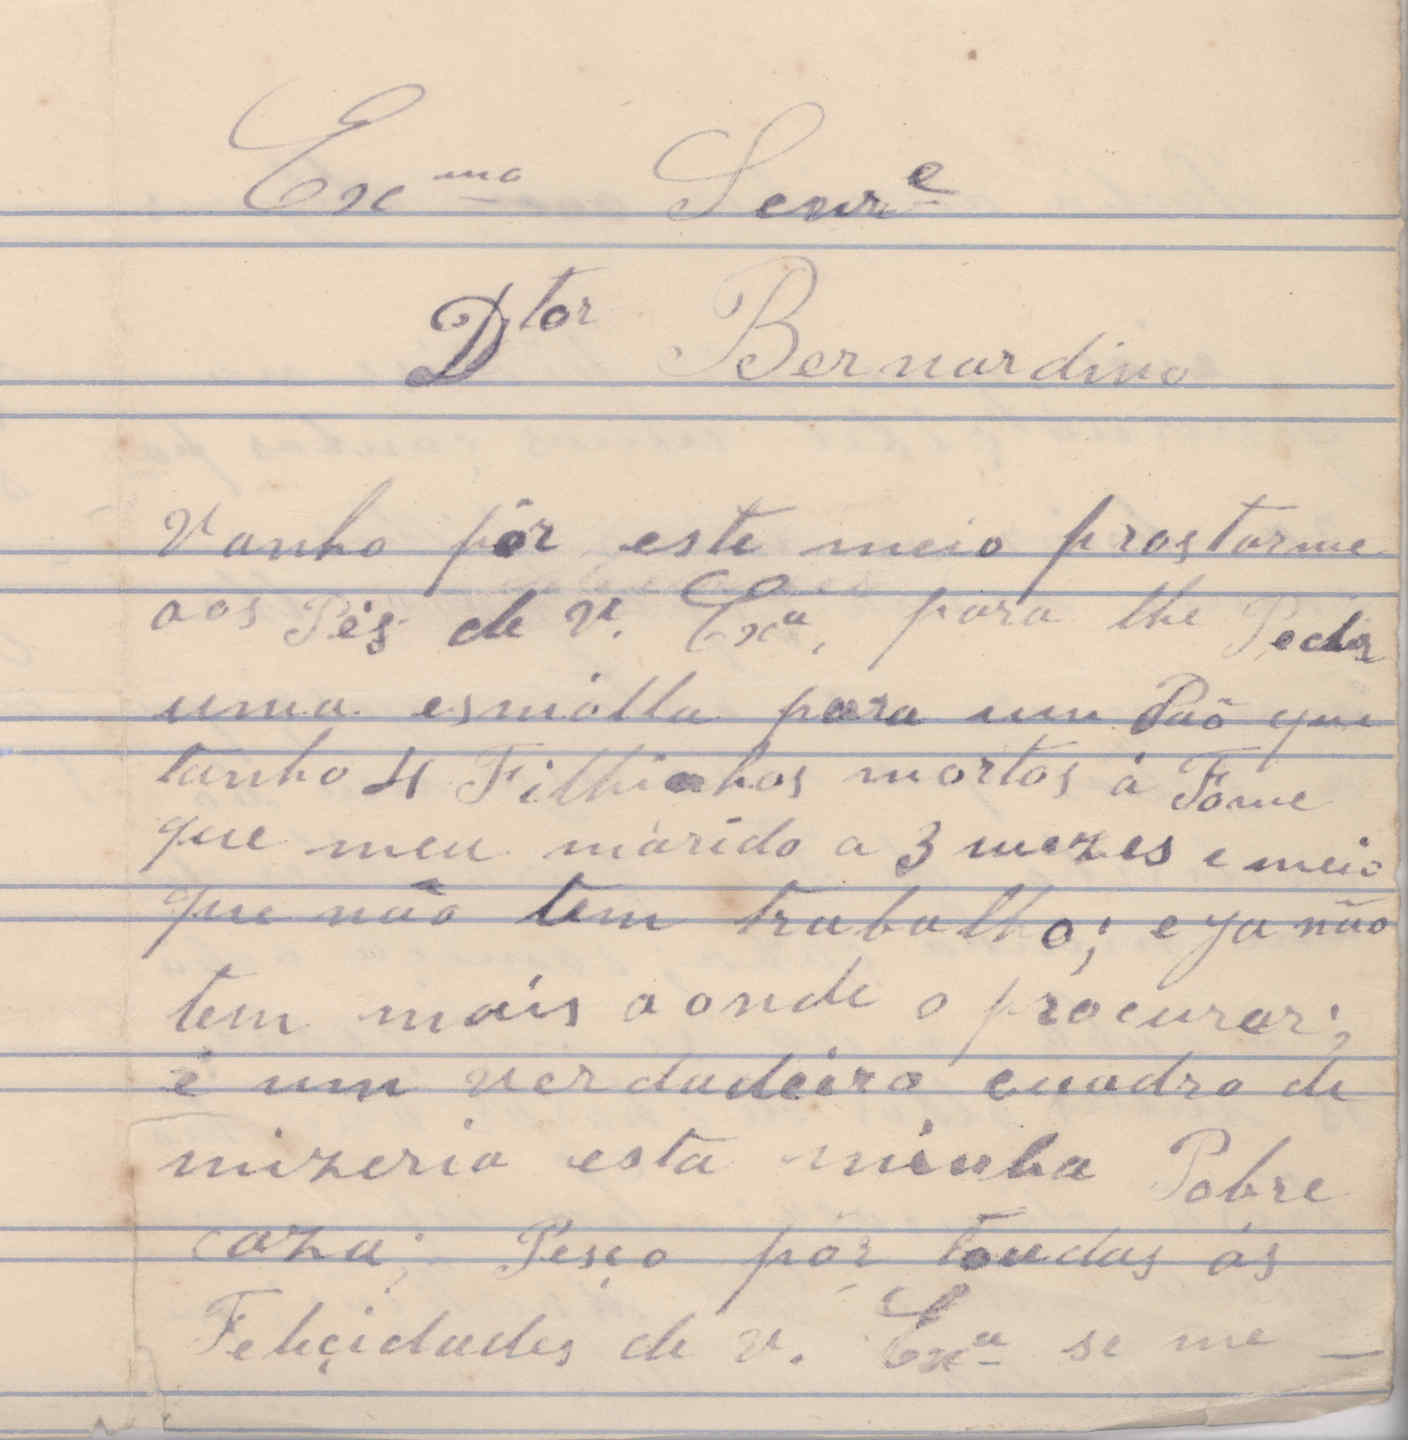 Exmo Senre
Dtor Bernardino
Vanho pór este meio prostarme
aos Pés de v. Exa, para lhe Pedir
uma esmólla para um Paõ que
tanho 4 Filhinhos mortos á Fome
que meu márido a 3 mezes e meio
que não tem trabalho; e ja não
tem mais aonde o procurar;
é um verdadeiro cuadro de
mizeria esta minha Pobre
caza; Pesço pór toudas ás
Feliçidades de v. Exa se me —